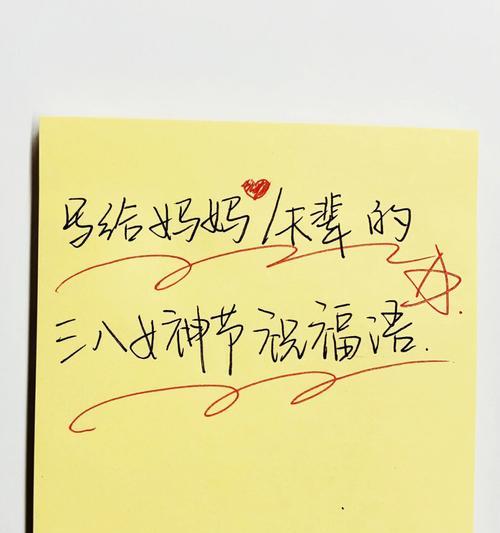 写给妈妈/长辈的
三八女神节祝福语.